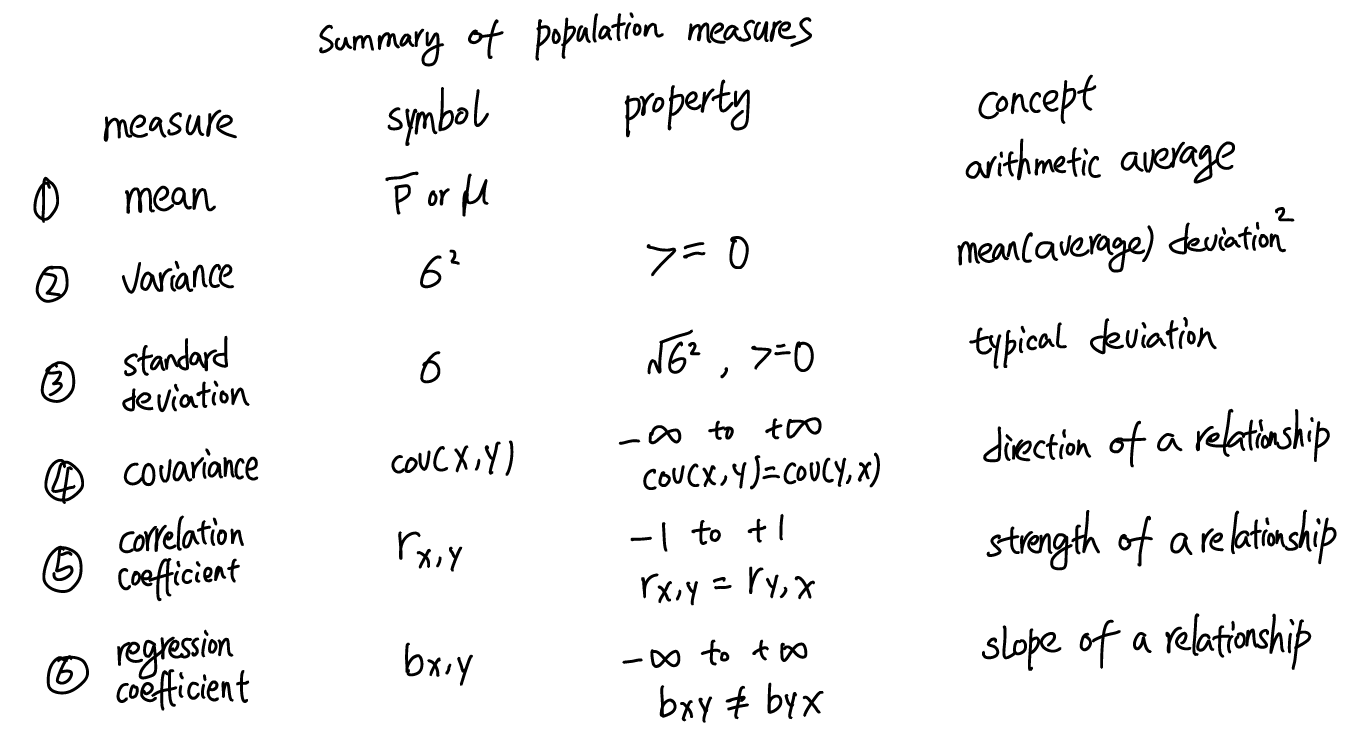 Summary of population measures
measure symbol property concept
① mean P̅ or μ arithmetic average
② variance σ² >= 0 mean(average) deviation²
③ standard deviation σ √σ² , >=0 typical deviation
④ covariance cov(x,y) -∞ to +∞ direction of a relationship
cov(x,y)=cov(y,x)
⑤ correlation coefficient rx,y -1 to +1 strength of a relationship
rx,y = ry,x
⑥ regression coefficient bx,y -∞ to +∞ slope of a relationship
bxy ≠ byx